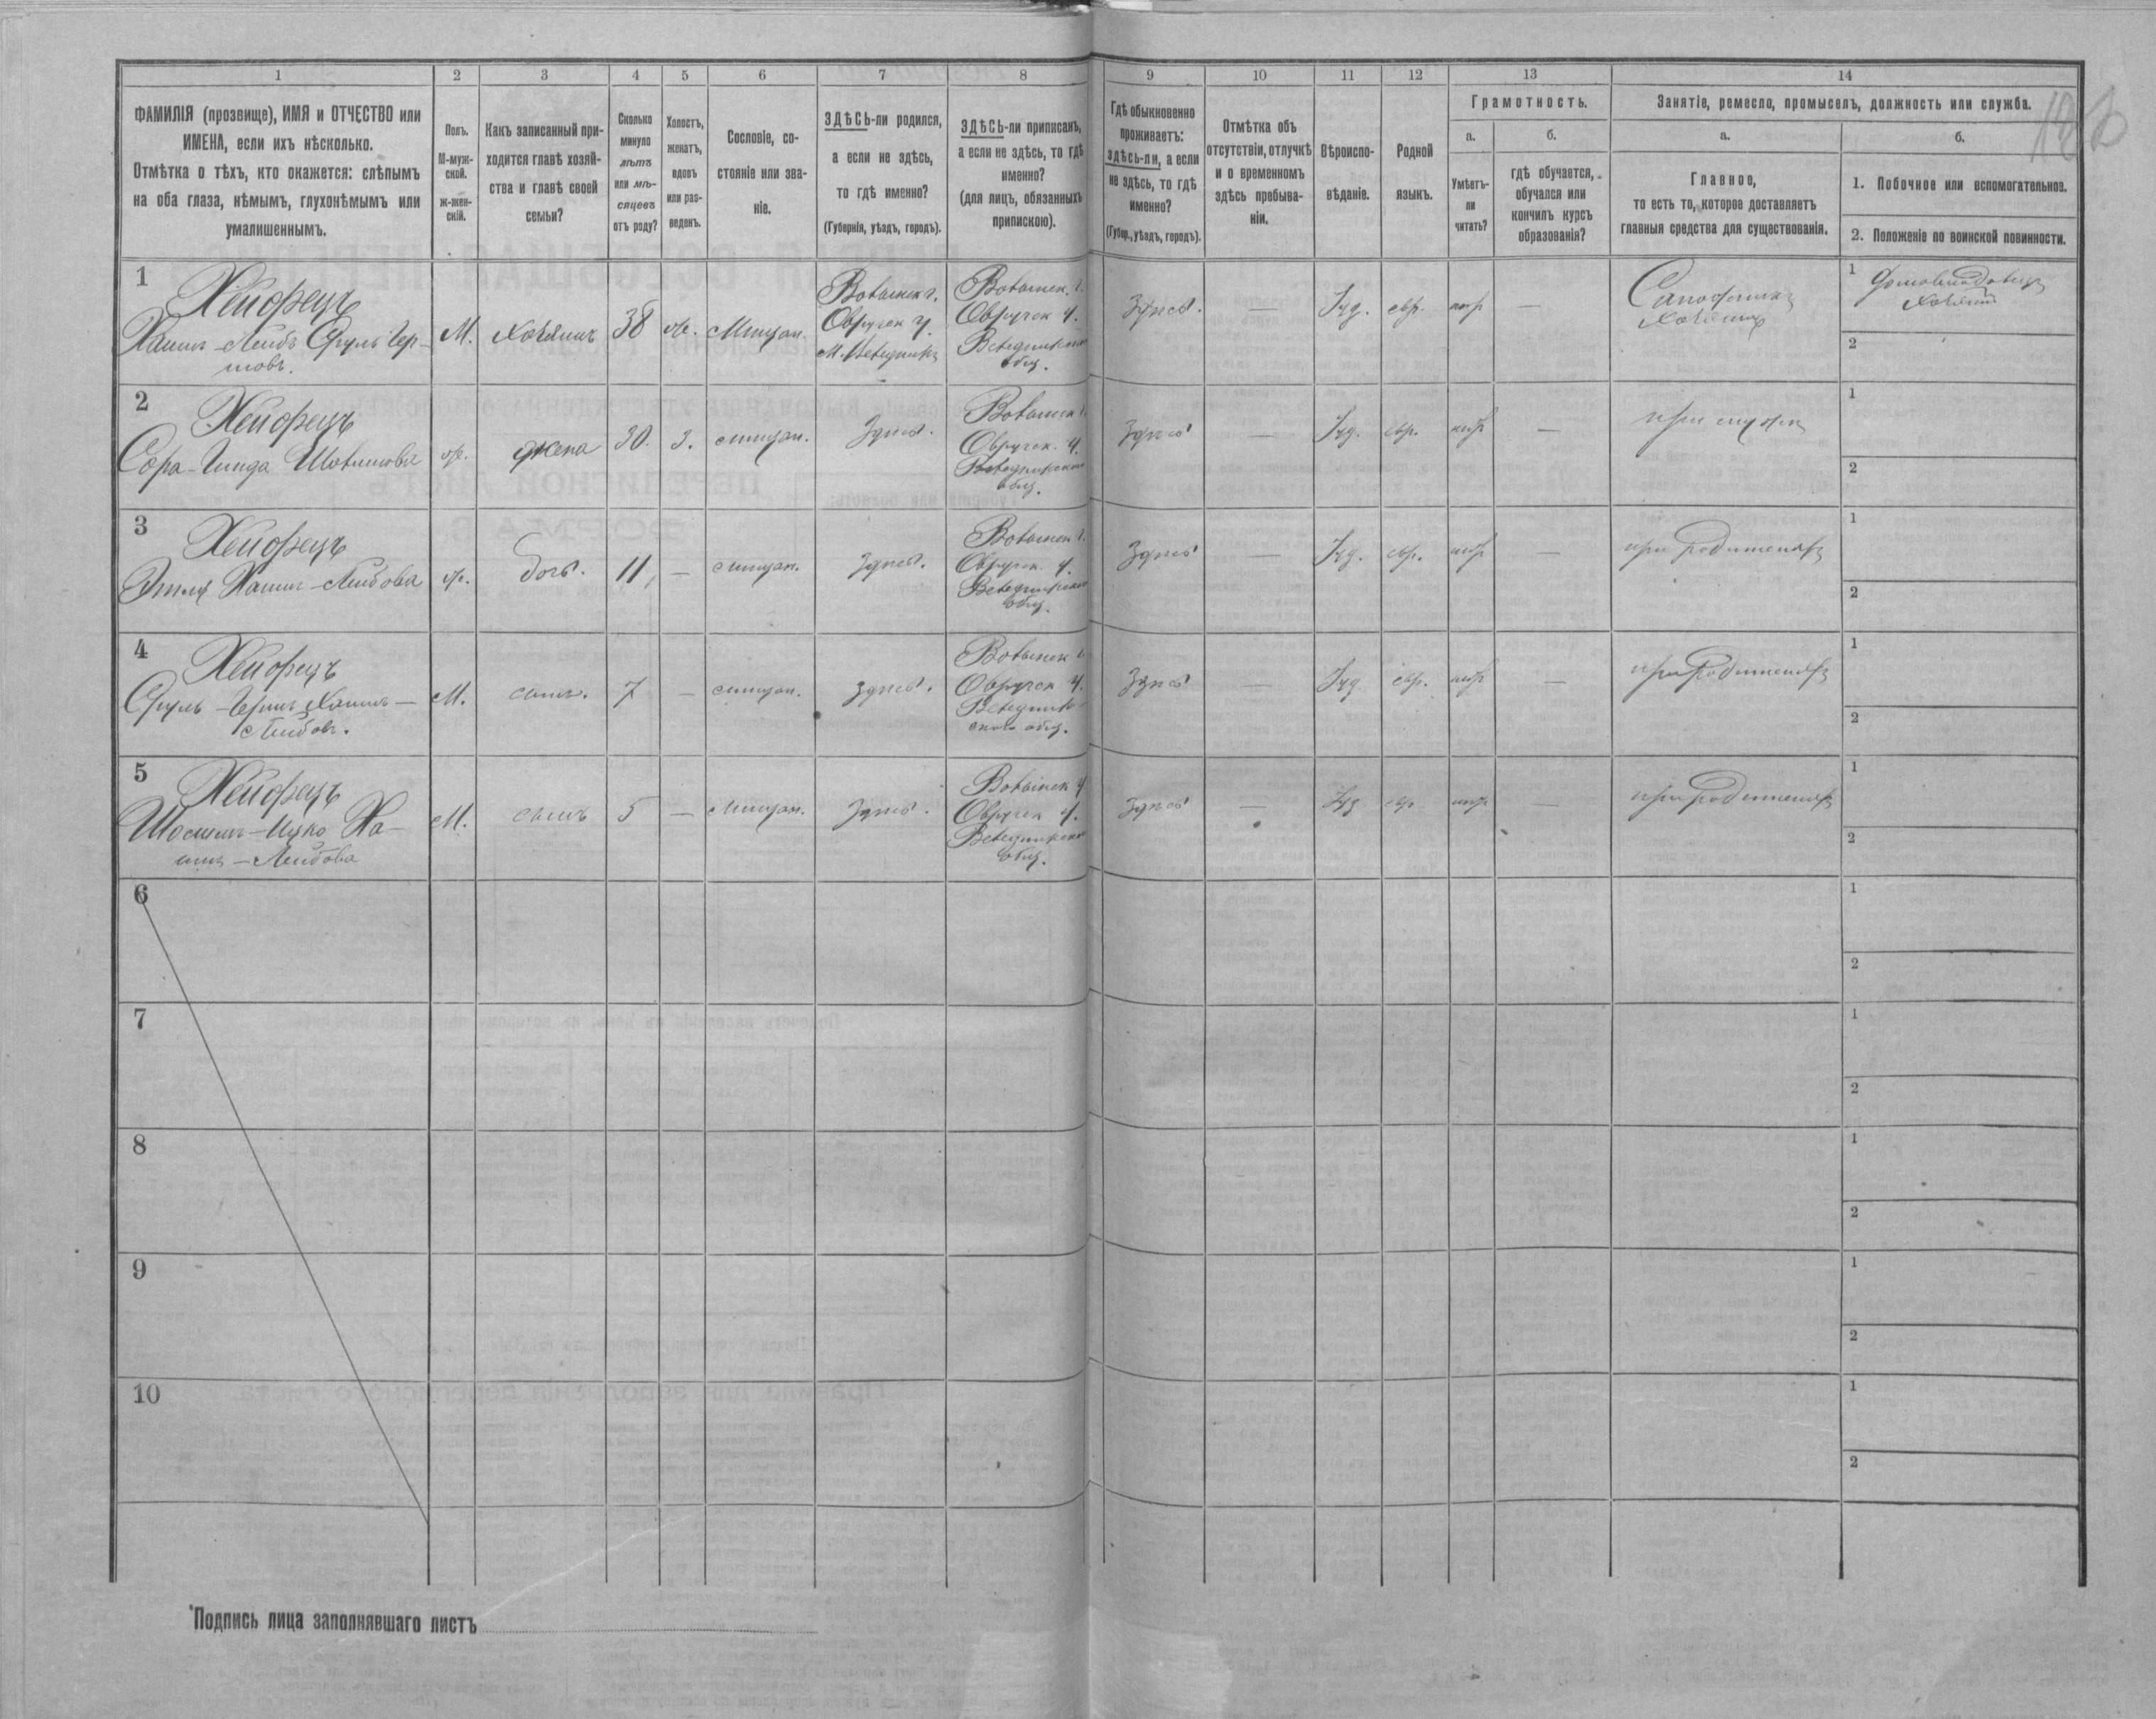 1 2 3 4 5 6 7 8 9 10 11 12 13 14
ФАМИЛІЯ (прозвище), ИМЯ и ОТЧЕСТВО или
ИМЕНА, если ихъ нѣсколько.
Отмѣтка о тѣхъ, кто окажется: слѣпымъ
на оба глаза, нѣмымъ, глухонѣмымъ или
умалишеннымъ.
Полъ.
М-муж-
ской.
Ж-жен-
скій.
Какъ записанный при-
ходится главѣ хозяй-
ства и главѣ своей
семьи?
Сколько
минуло
лѣтъ
или мѣ-
сяцевъ
отъ роду?
Холостъ,
женатъ,
вдовъ
или раз-
веденъ.
Сословіе, со-
стояніе или зва-
ніе.
ЗДѢСЬ-ли родился,
а если не здѣсь,
то гдѣ именно?
(Губернія, уѣздъ, городъ).
ЗДѢСЬ-ли приписанъ,
а если не здѣсь, то гдѣ
именно?
(для лицъ, обязанныхъ
припискою).
Гдѣ обыкновенно
проживаетъ:
здѣсь-ли, а если
не здѣсь, то гдѣ
именно?
(Губер., уѣздъ, городъ).
Отмѣтка объ
отсутствіи, отлучкѣ
и о временномъ
здѣсь пребыва-
ніи.
Вѣроиспо-
вѣданіе.
Родной
языкъ.
Грамотность.
а.
Умѣетъ-
ли
читать?
б.
гдѣ обучается,
обучался или
кончилъ курсъ
образованія?
Занятіе, ремесло, промыселъ, должность или служба.
а.
Главное,
то есть то, которое доставляетъ
главныя средства для существованія.
б.
1. Побочное или вспомогательное.
2. Положеніе по воинской повинности.
1
Хейфецъ
Хаимъ-Лейбъ Сруль Гер-
шовъ.
М.
хозяинъ
38
ж.
Мѣщан.
Волынск г.
Овручск у.
М. Веледники
Волынск. г.
Овручск у.
Веледникское
общ.
Здѣсь.
—
Іуд.
евр.
нѣтъ
—
Сапожникъ
хозяинъ
1
Домовладѣлецъ
хозяинъ
2
2
Хейфецъ
Сора-Гинда Шоломова
ж.
жена
30.
З.
мѣщан.
Здѣсь.
Волынск г.
Овручск. у.
Веледникское
общ.
Здѣсь
—
Іуд.
евр.
нѣтъ
—
при мужѣ
1
2
3
Хейфецъ
Этля Хаимъ-Лейбова
ж.
дочь.
11
—
мѣщан.
Здѣсь.
Волынск г.
Овручск. у.
Веледникское
общ.
Здѣсь
—
Іуд.
евр.
нѣтъ
—
при родителяхъ
1
2
4
Хейфецъ
Сруль-Гершъ Хаимъ-
Лейбов.
М.
сынъ.
7
—
мѣщан.
здѣсь.
Волынск г.
Овручск у.
Веледник-
ское общ.
Здѣсь
—
Іуд
евр.
нѣтъ
—
при родителяхъ
1
2
5
Хейфецъ
Ицко Ха-
имъ-Лейбова
М.
сынъ
5
—
мѣщан.
Здѣсь.
Волынск г.
Овручск у.
Веледникское
общ.
Здѣсь
—
Іуд
евр
нѣтъ
—
при родителяхъ
1
2
6
1
2
7
1
2
8
1
2
9
1
2
10
1
2
Подпись лица заполнявшаго листъ